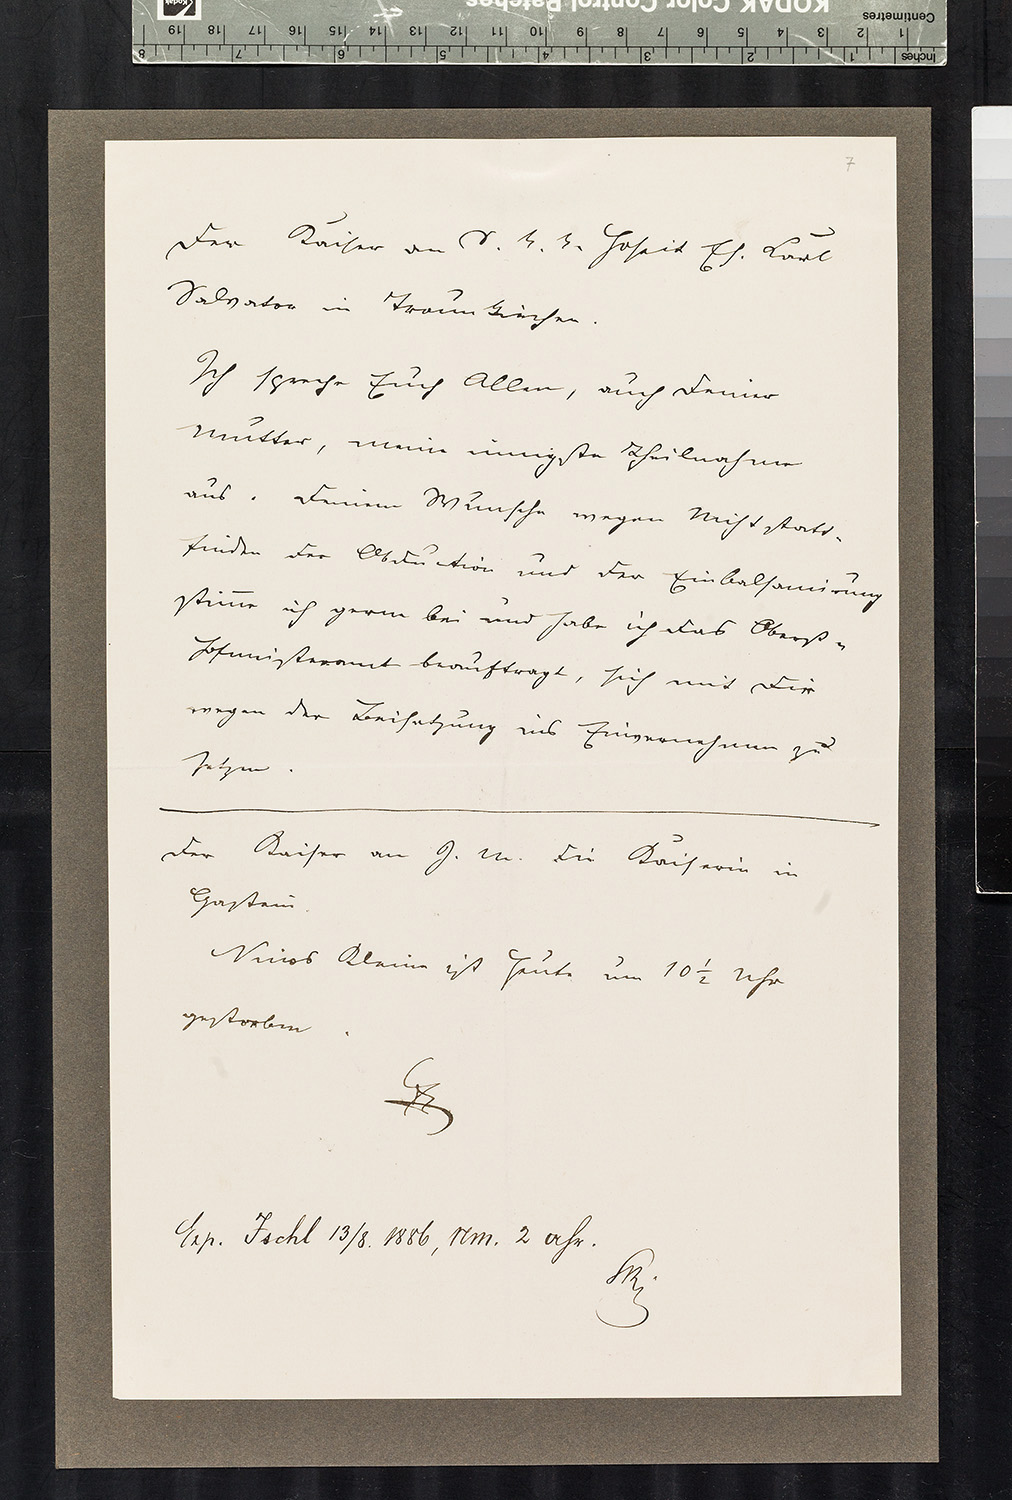 KODAK Color Control Patches
Centimetres
1 2 3 4 5 6 7 8 9 10 11 12 13 14 15 16 17 18 19
Inches
1 2 3 4 5 6 7 8
Kodak
7
Der Kaiser an S. k. k. Hoheit Eh. Karl
Salvator in Traunkirchen.
Ich spreche Euch Allen, auch Deiner
Mutter, meine innigste Theilnahme
aus. Deinem Wunsche wegen Nichtstatt-
finden der Obduction und der Einbalsamirung
stim̄e ich gerne bei und habe ich das Oberst-
Hofmeisteramt beauftragt, sich mit Dir
wegen der Beisetzung ins Einvernehmen zu
setzen.
Der Kaiser an I. M. die Kaiserin in
Gastein.
Ninos Kleine ist heute um 10 ½ Uhr
gestorben.
Exp. Ischl 13/8. 1886, Nm. 2 Uhr.